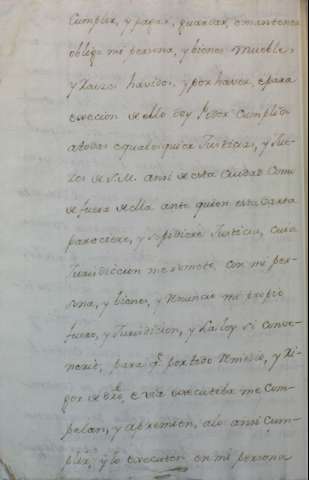 Cumplir, y pagar, guardar, e mantener
obligo mi persona, y bienes muebles
y Raices havidos, y por haver, epara
execucion de ello doy Poder Cumplido
atodas equalesquier Justicias, y Jue-
zes de S.M. ansi de esta Ciudad Como
de fuera de ella ante quien esta Carta
pareciere, y se pidiere Justicia, cuia
Jurisdiccion me someto, con mi per-
sona, y bienes, y Renuncio mi propio
fuero, y Jurisdicion, y La Ley si Conve-
nerit, para q.e por todo Remedio, y Ri-
gor de dro, e via executiba me Com-
pelan, y apremien, alo ansi Cum-
plir, y lo executen en mi persona